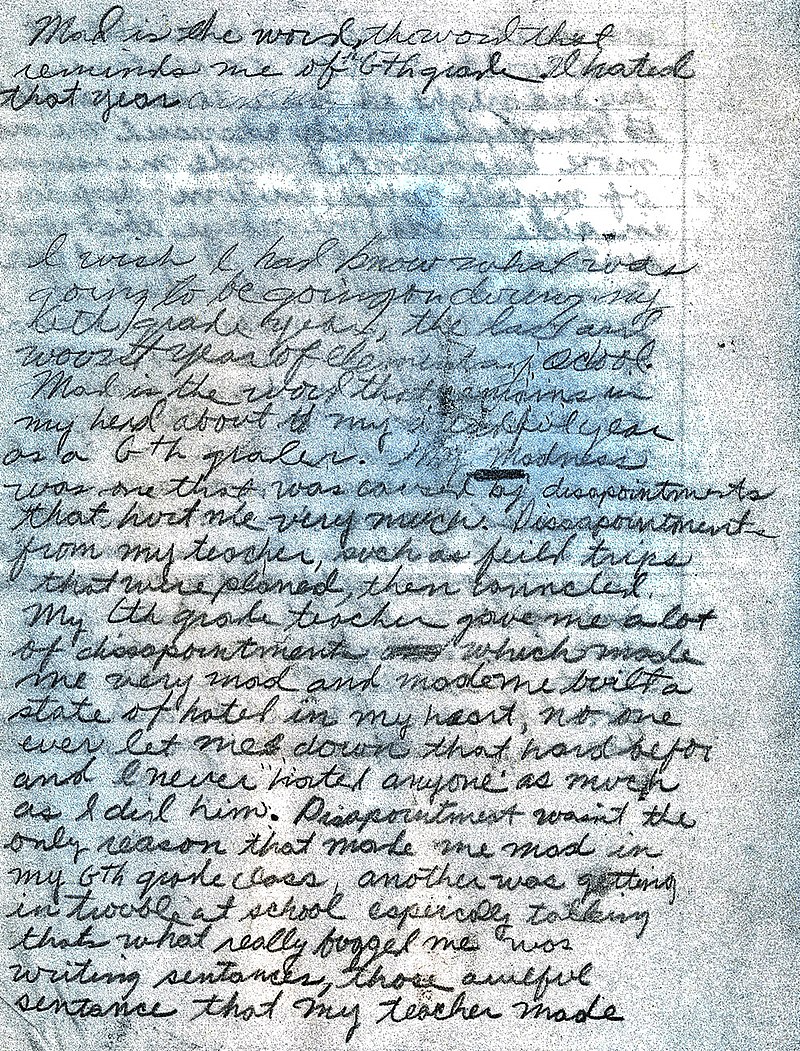 Mad is the word, the word that
reminds me of 6th grade I hated
that year
I wish I had know what was
going to be going on during my
6th grade year, the last and
woorst year of elementary scool.
Mad is the word that remains in
my head about my year
as a 6th grader. My Madness
was one that was caused by disapointments
that hort me very much. Dissapointments
from my teacher, such as feild trips
that were planed, then canncled.
My 6th grade teacher gave me a lot
of dissapointments which made
me very mad and made me built a
state of hatel in my heart, no one
ever let me down that hard befor
and I never "hated anyone" as much
as I did him. Disapointment wasn't the
only reason that made me mad in
my 6th grade class, another was getting
in trooble at school espiricdly talking
thats what really bugged me was
writing sentances, those awlful
sentance that my teacher made